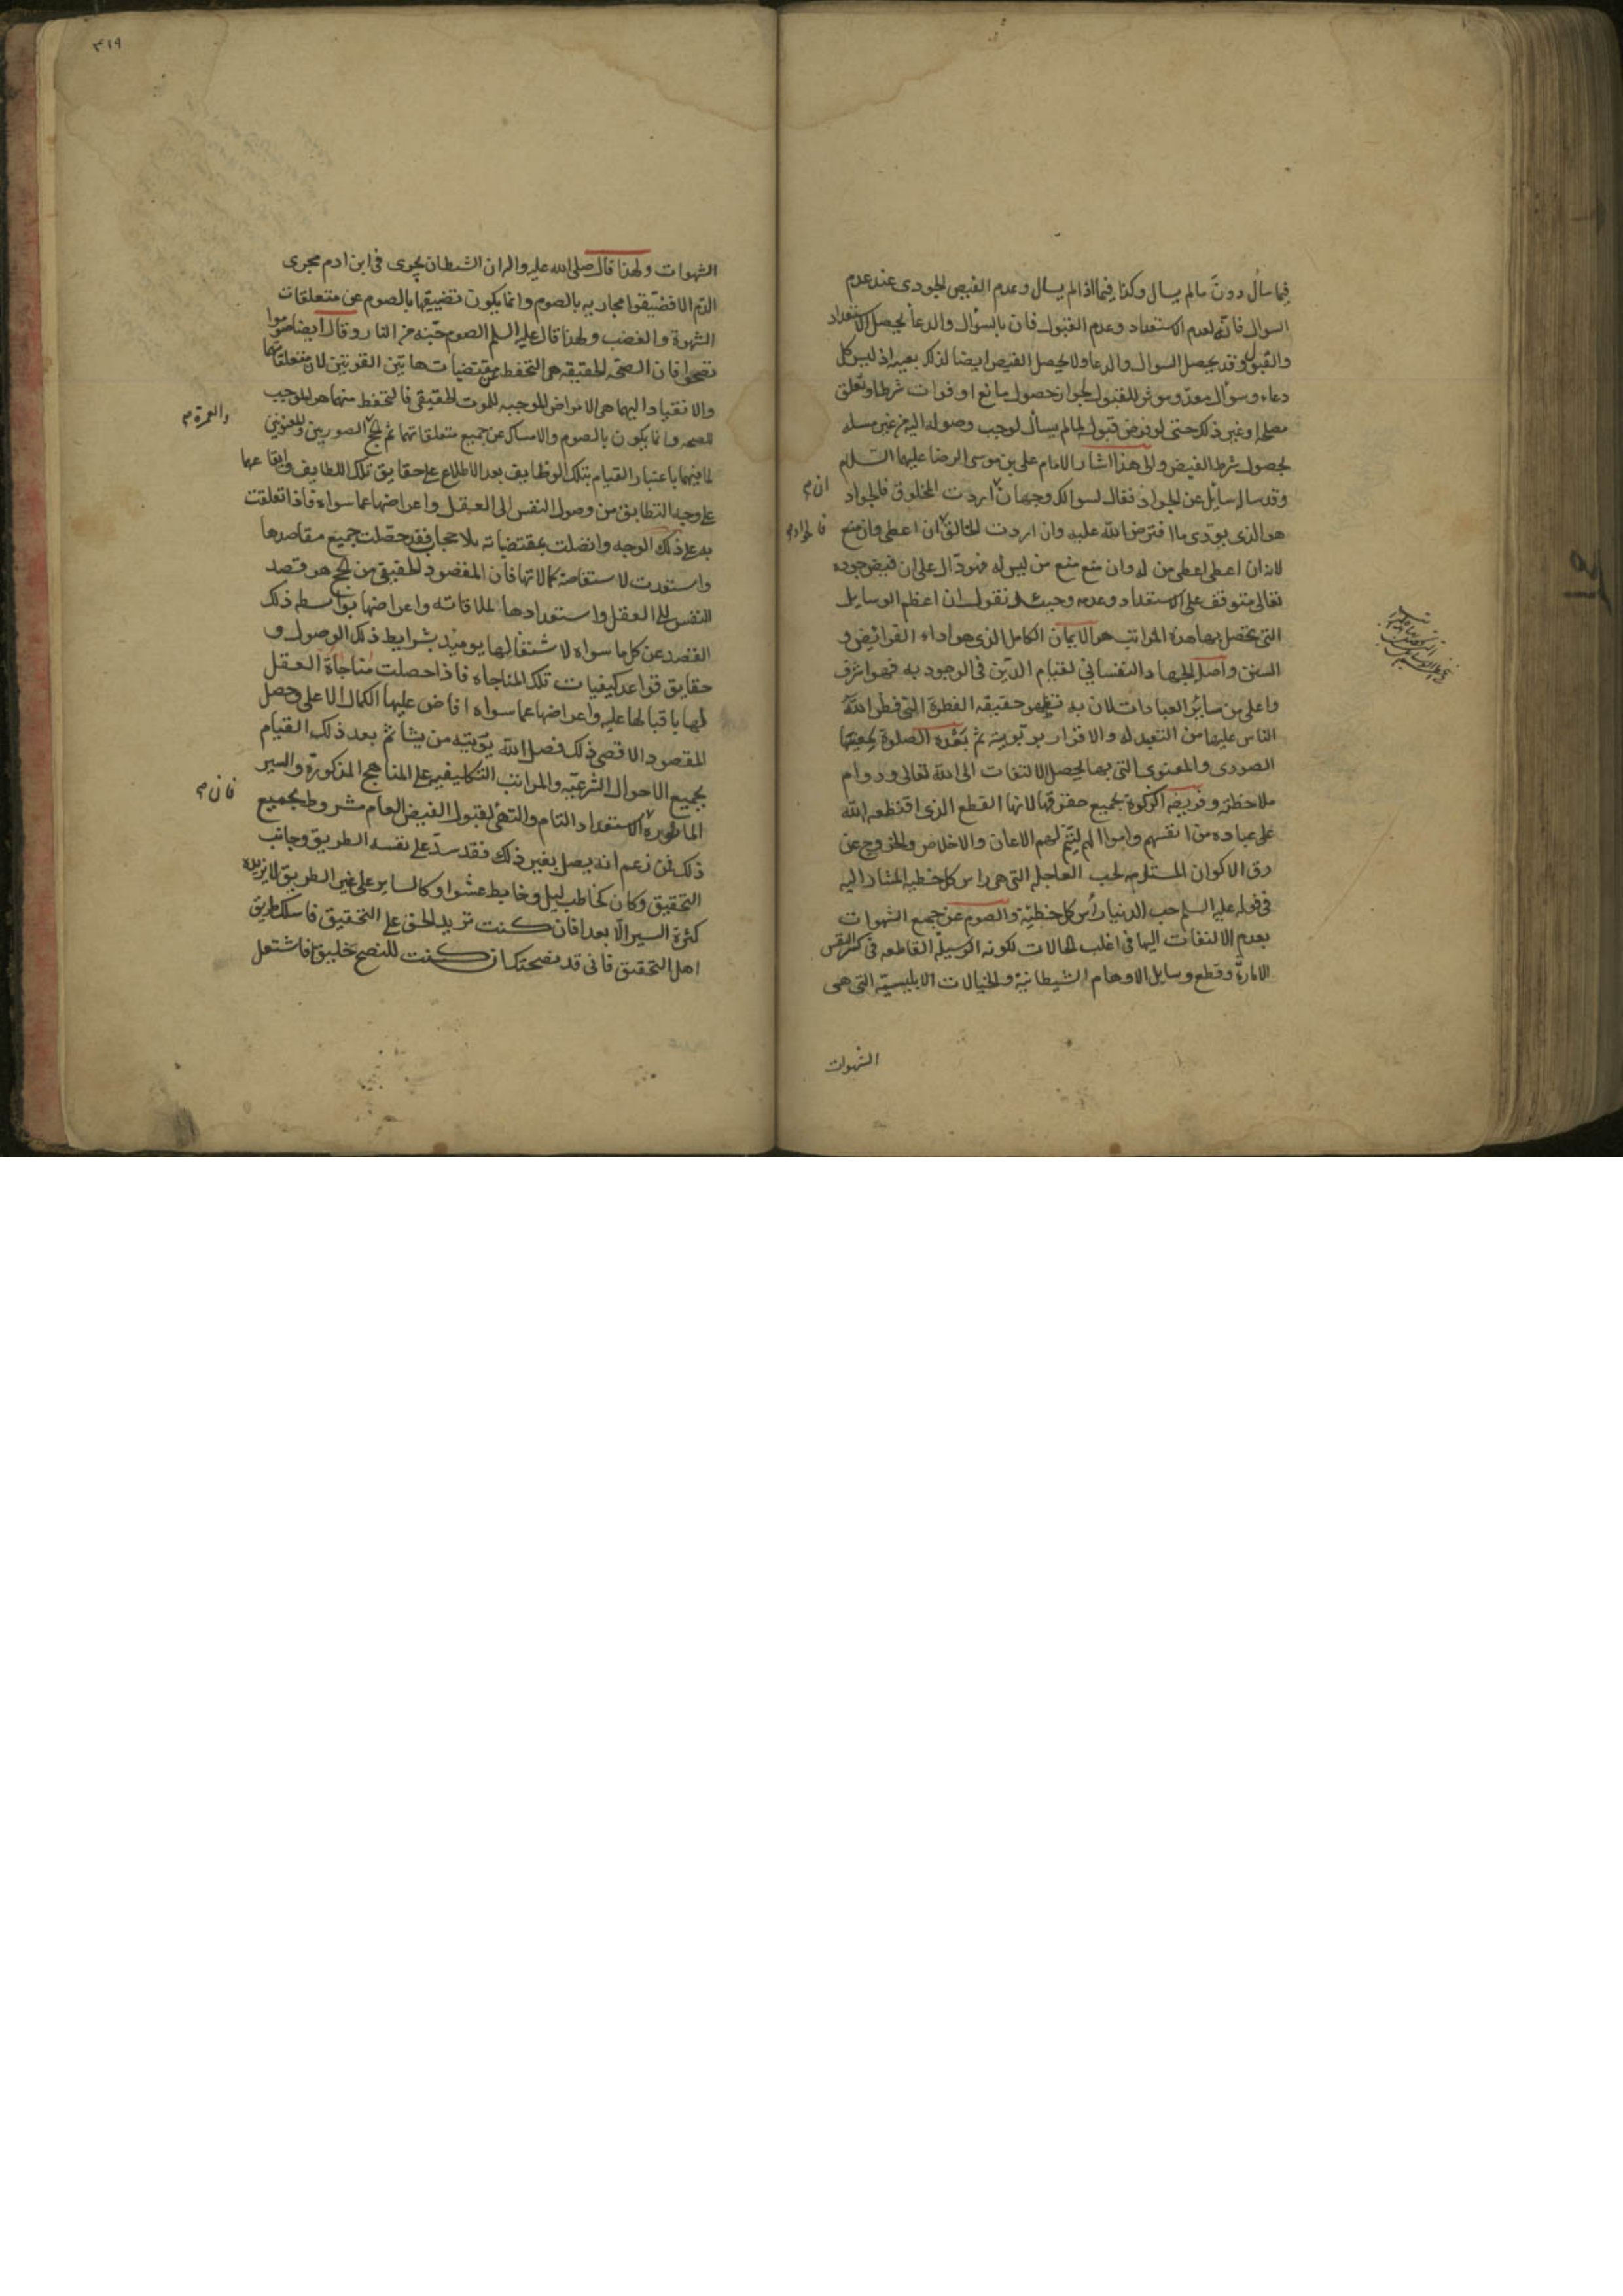 فيما سأل دون ما لم يسأل وكذا فيما اذا لم يسأل وعدم الفيض الجودى عند عدم
السوال فانه لعدم الاستعداد وعدم القبول فان بالسؤال والدعا يحصل الاستعداد
والقبول وقد يحصل السوال والدعا ولا يحصل الفيض ايضا لذلك بعينه اذ ليس كل
دعاء وسوال معدّ وموثر للقبول لجواز حصول مانع او فوات شرط او تعلق
مصلحة او غير ذلك حتى لو فرض قبوله لما لم يسأل لوجب وصوله اليه من غير مسله
لحصول شرط الفيض والى هذا اشار الامام على بن موسى الرضا عليهما السلام
وقد ساله سايل عن الجواد فقال لسوالك وجهان اردت المخلوق فالجواد
ان م
هو الذى يودى ما افترض الله عليه وان اردت الخالق ان اعطى وان منع
فالجواد م
لانه ان اعطى اعطى من له وان منع منع من ليس له فهو دال على ان فيض جوده
تعالى متوقف على الاستعداد وعدمه وحينئذ نقول ان اعظم الوسايل
التى تحصل بها هذه المراتب هو الايمان الكامل الذى هو اداء الفرائض و
السنن واصل الجهاد النفسانى لقيام الدين فى الوجود به فهو اشرف
واعلى من سائر العبادات لان به تظهر حقيقه الفطرة التى فطر الله
الناس عليها من التعبد له والاقرار بربوبيته ثم بعده الصلوة بمعنييها
الصورى والمعنوى التى بها يحصل الالتفات الى الله تعالى ودوام
ملاحظته وفريضه الزكوة بجميع حقوقها لانها القطع الذى اقتطعه الله
على عباده من انفسهم واموالهم ليتم لهم الاعان والاخلاص والخروج عن
رق الاكوان المستلزمه لحب العاجله التى هى راس كل خطيه المشار اليه
فى قوله عليه السلم حب الدنيا رأس كل خطيئة والصوم عن جميع الشهوات
بعدم الالتفات اليها فى اغلب الحالات لكونه الوسيلة القاطعه فى كسر النفس
الامارة وقطع وسايل الاوهام الشيطانية والخيالات الابليسيّه التى هى
الشهوات
٣١٩
الشهوات ولهذا قال صلى الله عليه واله ان الشيطان يجرى فى ابن ادم مجرى
الدم الا فضيقوا مجاريه بالصوم وانما يكون تضييقها بالصوم عن متعلقات
الشهوة والغضب ولهذا قال عليه السلم الصوم جنه من النار وقال ايضا صوموا
تصحوا فان الصحه الحقيقه هى التحفظ عن مقتضيات هاتين القوتين لان متعلقاتها
والانقياد اليهما هى الامراض الموجبه للموت الحقيقى فالتحفظ منهما هو الموجب
للصحه وانما يكون بالصوم والامساك عن جميع متعلقاتهما ثم الحج الصوريين والمعنويين
والعمرة م
لما فيهما باعتبار القيام بتلك الوظايف بعد الاطلاع على حقايق تلك اللطايف وايقاعها
على وجه التطابق من وصول النفس الى العقل واعراضها عما سواه فاذا تعلقت
به على ذلك الوجه واتصلت بمقتضياته بلا حجاب فقد حصلت جميع مقاصدها
واستعدت لاستفاضة كمالاتها فان المقصود الحقيقى من الحج هو قصد
النفس الى العقل واستعدادها لملاقاته واعراضها بواسطه ذلك
القصد عن كل ما سواه لاشتغالها يوميذ بشرايط ذلك الوصول و
حقايق قواعد كيفيات تلك المناجاه فاذا حصلت مناجاة العقل
لها باقبالها عليه واعراضها عما سواه افاض عليها الكمال الاعلى وحصل
المقصود الاقصى ذلك فضل الله يؤتيه من يشا ثم بعد ذلك القيام
بجميع الاحوال الشرعيه والمراتب التكليفيه على المناهج المذكورة والسير
المأثورة الاستعداد التام والتهئ لقبول الفيض العام مشروط بجميع
فان م
ذلك فمن زعم انه يصل بغير ذلك فقد سد على نفسه الطريق وجانب
التحقيق وكان كحاطب ليل وخابط عشوا وكالساير على غير الطريق لا يزيده
كثرة السير الا بعدا فان كنت تريد الحق على التحقيق فاسلك طريق
اهل التحقيق فانى قد نصحتك ان كنت للنصح خليق فاشتغل